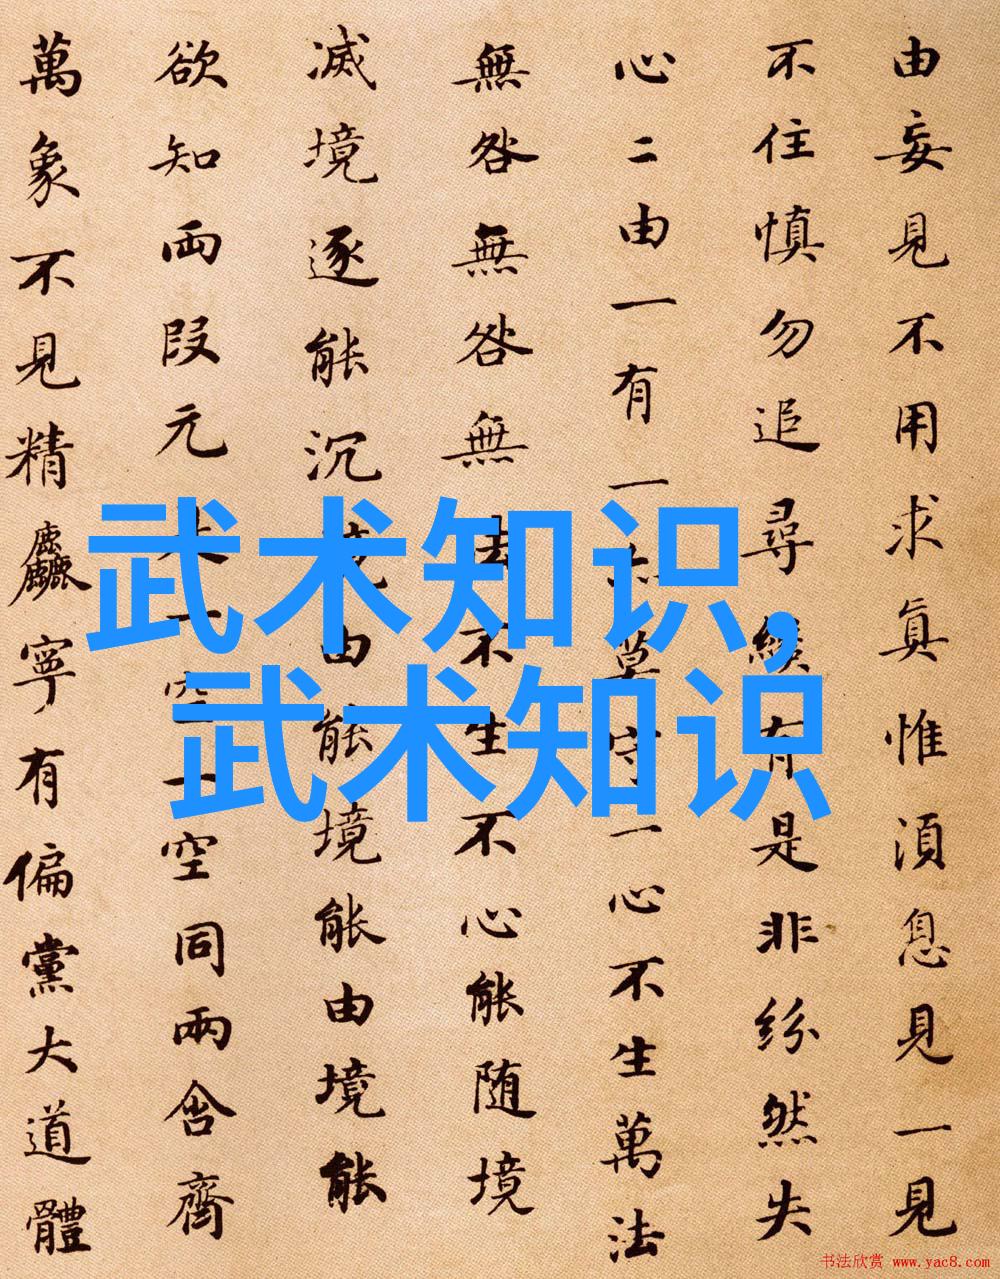 由妄見不用求真惟須息見一見
不住慎勿追尋纔有是非紛然失
心二由一有一亦莫守一心不生萬法
無咎無咎無法不生不心能随境
滅境逐能沉境由能境能由境能
欲知両段元是一空一空同兩含齊
萬象不見精麤寧有偏黨大道體
武术知识,
武术知识
书法欣赏 www.yac8.com